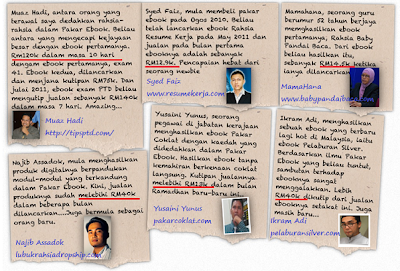 Muaz Hadi, antara orang yang
terawal saya dedahkan raksia-
raksia dalam Pakar Ebook. Beliau
antara yang mengecapi kejayaan
besar dengan ebook pertamanya,
RM120k dalam masa 10 hari
dengan ebook pertamanya, exam
41. Ebook kedua, dilancarkan
dan menjana kutipan RM78k. Dan
Julai 2011, ebook exam PTD beliau
mengutip jualan sebanyak RM140k
dalam masa 7 hari. Amazing...
Muaz Hadi
http://tipsptd.com/
Syed Faiz, mula membeli pakar
ebook pada Ogos 2010. Beliau
telah lancarkan ebook Raksia
Resume Kerja pada May 2011 dan
jualan pada bulan pertama
ebooknya adalah sebanyak
RM12.9k. Pencapaian hebat dari
seorang newbie
Syed Faiz
www.resumekerja.com
Mamahana, seorang guru
berumur 52 tahun berjaya
menghasilkan ebook
pertamanya, Raksia Baby
Pandai Baca. Dari ebook
beliau hasilkan itu,
sebanyak RM14.5k ketika
ianya dilancarkan
MamaHana
www.babypandaibaca.com
Najib Assadok, mula menghasilkan
produk digitalnya berpandukan
modul-modul yang terkandung
dalam Pakar Ebook. Kini, jualan
produknya sudah melebihi RM40k
dalam beberapa bulan
dilancarkan...Juga bermula sebagai
orang baru.
Najib Assadok
lubukrahsiadropship.com
Yusaini Yunus, seorang
pegawai di jabatan kerajaan
menghasilkan ebook Pakar
Coklat dengan kaedah yang
didedahkan dalam Pakar
Ebook. Hasilkan ebook tanpa
kemahiran berkenaan coklat
langsung. Kutipan jualannya
melebihi RM13k dalam bulan
Ramadhan baru-baru ini.
Yusaini Yunus
pakarcoklat.com
Ikram Adi, menghasilkan
sebuah ebook yang terbaru
lagi hot di Malaysia, iaitu
ebook Pelaburan Silver.
Berdasarkan ilmu Pakar
Ebook yang beliau tuntut,
sambutan terhadap
ebooknya sangat
menggalakkan. Lebih
RM40k dikutip dari jualan
ebooknya setakat ini. Juga
masih baru...
Ikram Adi
pelaburansilver.com